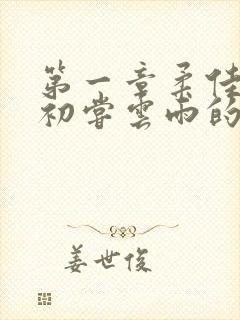 第一章柔佳
初尝云雨的
姜世俊